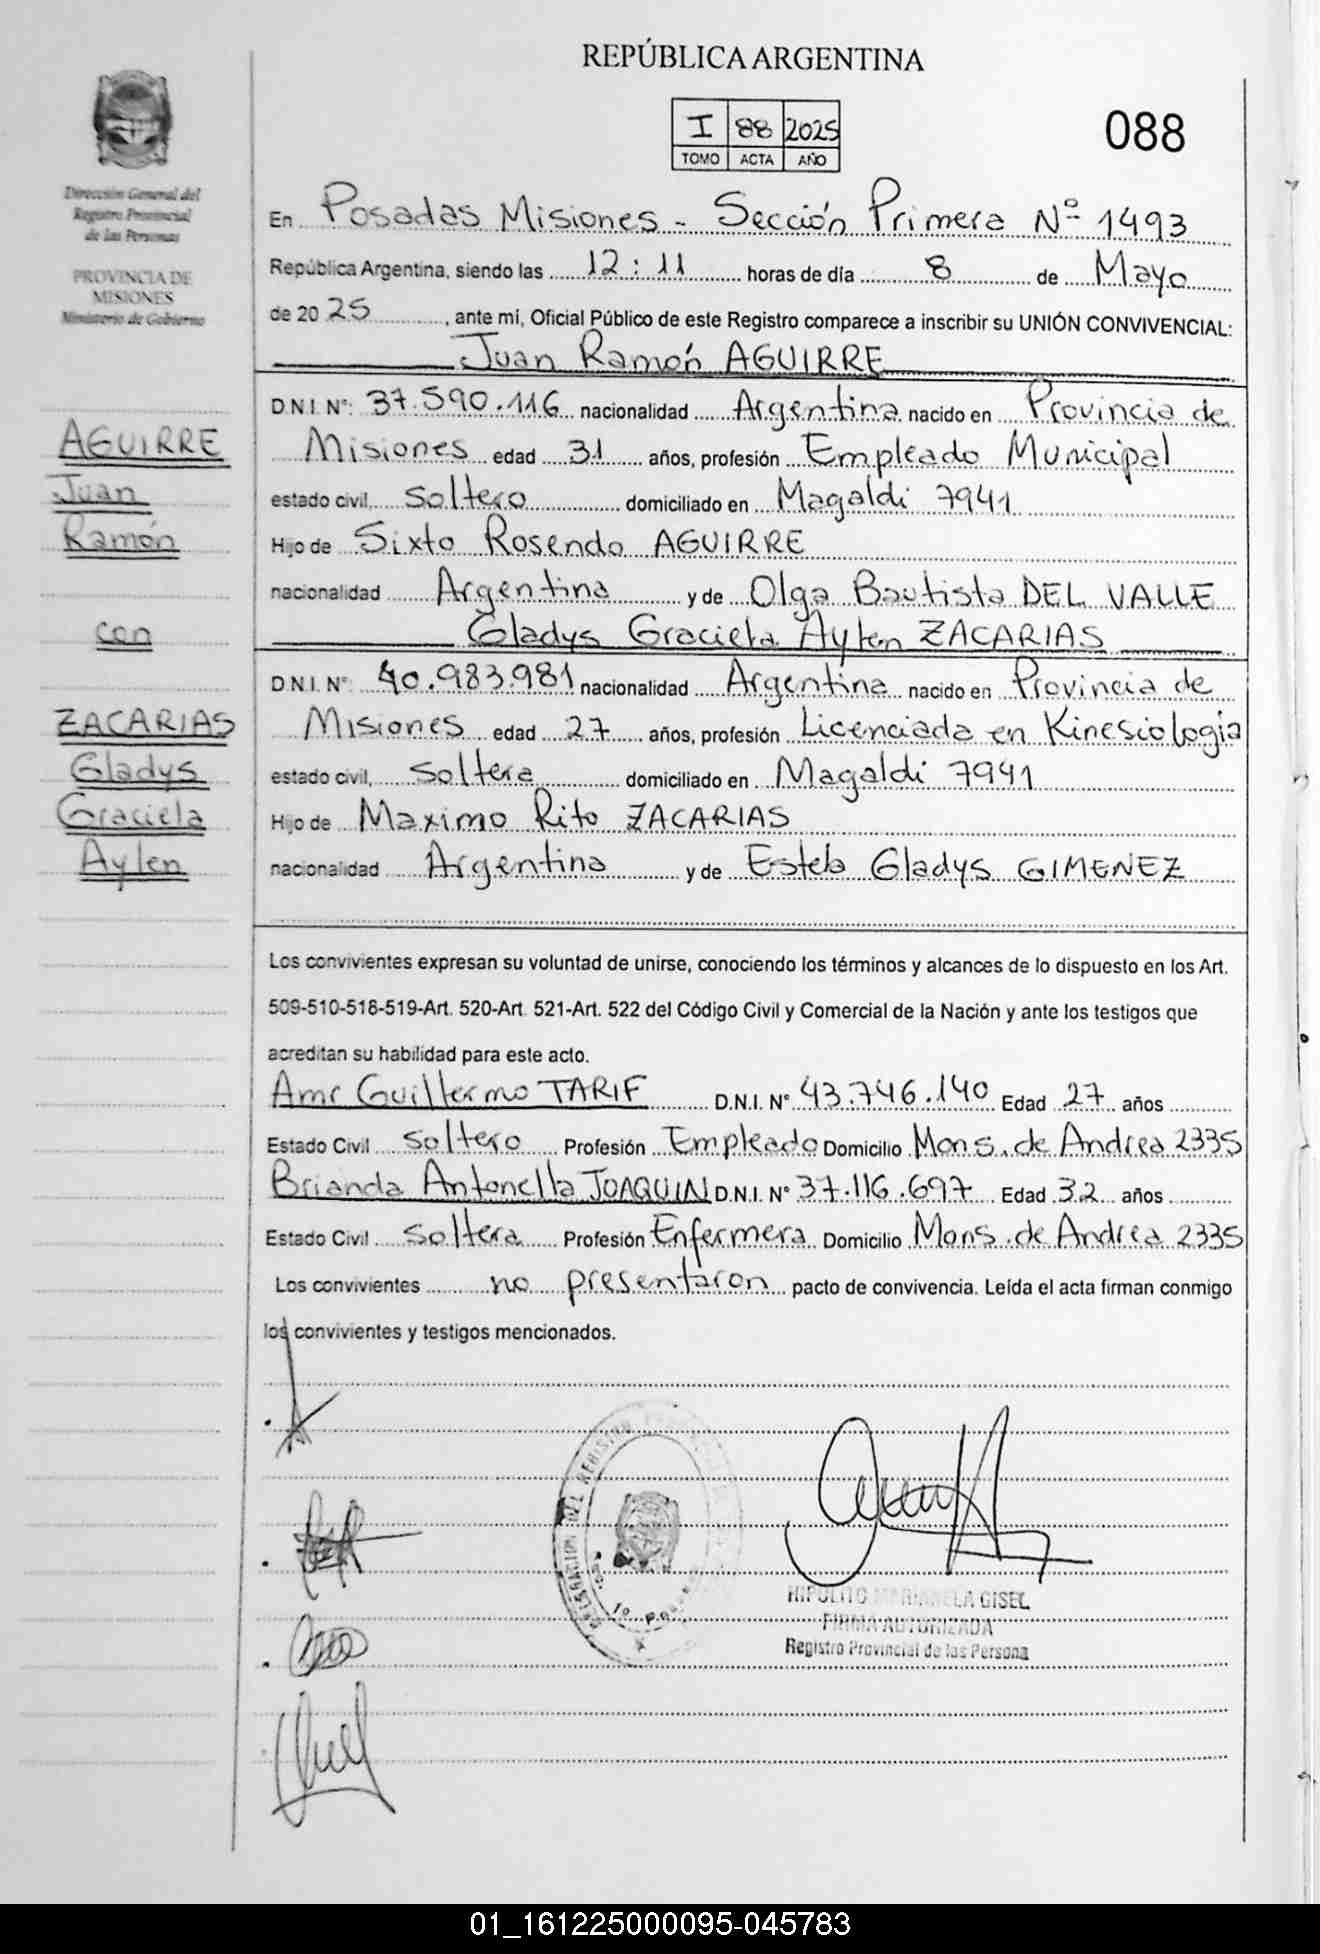 REPÚBLICA ARGENTINA
I 88 2025
TOMO ACTA AÑO
088
Dirección General del
Registro Provincial
de las Personas
PROVINCIA DE
MISIONES
Ministerio de Gobierno
AGUIRRE
Juan
Ramón
con
ZACARIAS
Gladys
Graciela
Aylen
En Posadas Misiones - Sección Primera Nº 1493
República Argentina, siendo las 12:11 horas de día 8 de Mayo
de 20 25, ante mí, Oficial Público de este Registro comparece a inscribir su UNIÓN CONVIVENCIAL:
Juan Ramón AGUIRRE
D.N.I. Nº: 37.590.116 nacionalidad Argentina nacido en Provincia de
Misiones edad 31 años, profesión Empleado Municipal
estado civil, soltero domiciliado en Magaldi 7941
Hijo de Sixto Rosendo AGUIRRE
nacionalidad Argentina y de Olga Bautista DEL VALLE
Gladys Graciela Aylen ZACARIAS
D.N.I. Nº 40.983.981 nacionalidad Argentina nacido en Provincia de
Misiones edad 27 años, profesión Licenciada en Kinesiologia
estado civil, soltera domiciliado en Magaldi 7941
Hijo de Maximo Rito ZACARIAS
nacionalidad Argentina y de Estela Gladys GIMENEZ
Los convivientes expresan su voluntad de unirse, conociendo los términos y alcances de lo dispuesto en los Art.
509-510-518-519-Art. 520-Art. 521-Art. 522 del Código Civil y Comercial de la Nación y ante los testigos que
acreditan su habilidad para este acto.
Amr Guillermo TARIF D.N.I. Nº 43.746.140 Edad 27 años
Estado Civil soltero Profesión Empleado Domicilio Mons. de Andrea 2335
Brianda Antonella JOAQUIN D.N.I. Nº 37.116.697 Edad 32 años
Estado Civil soltera Profesión Enfermera Domicilio Mons. de Andrea 2335
Los convivientes no presentaron pacto de convivencia. Leída el acta firman conmigo
los convivientes y testigos mencionados.
HIPOLITO MARIANELA GISEL
FIRMA AUTORIZADA
Registro Provincial de las Persona
01_161225000095-045783